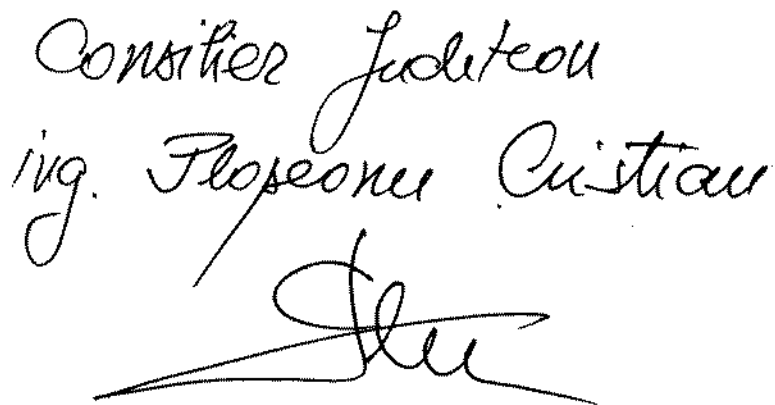 Consilier Județean
ing. Ploșeanu Cristian